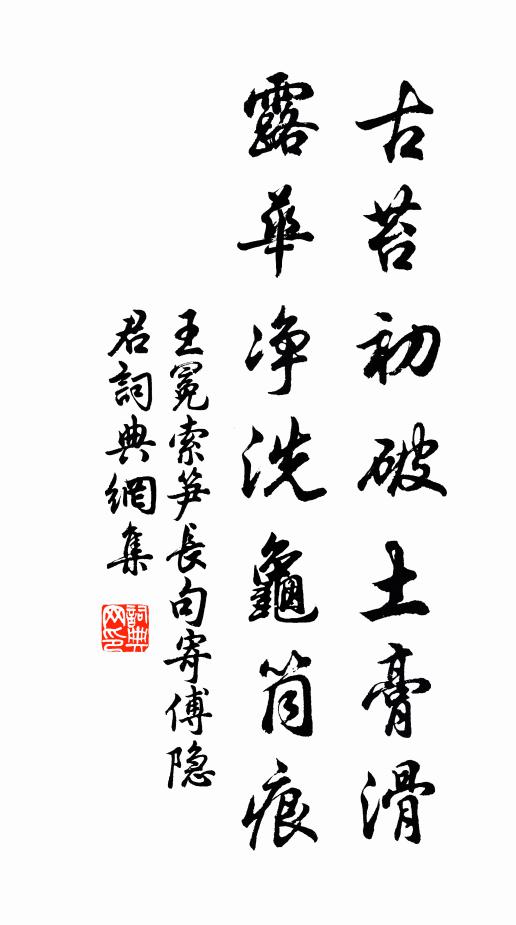 古苔初破土膏滑
露華净洗龜筒痕
王冕索笋長句寄傅隐
君詞典網集
詞典网印